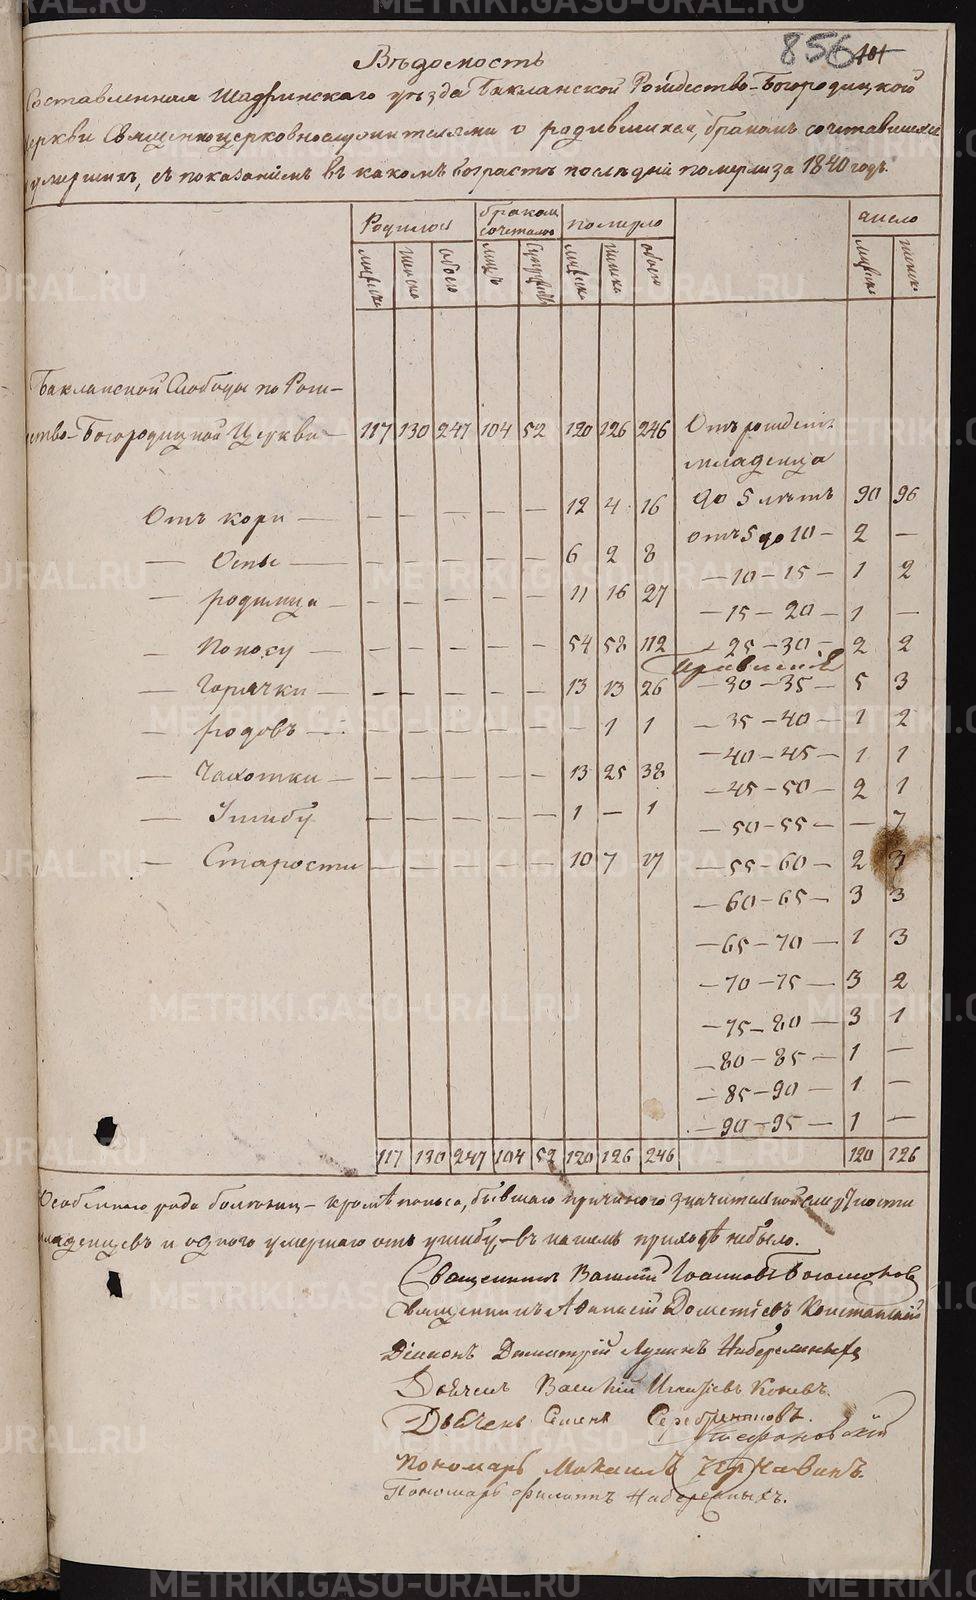 856 401
Вѣдомость
Составленная Шадринскаго уѣзда Бакланской Рождество-Богородицкой
Церкви Священноцерковнослужителями о родившихся, бракомъ сочетавшихся
умершихъ, съ показанiемъ въ какомъ возрастѣ послѣднiе померли за 1840 годъ.
Родилось бракомъ сочетало померло число
мужеск женско обоего лицъ супружествъ мужеск женск обоего мужеск женск
Бакланской Слободы по Рож-
ство-Богородицкой Церкви — 117 130 247 104 52 120 126 246 Отъ рожденiя
младенца
до 5 лѣтъ 90 96
Отъ кори — — — — — — 12 4 16
отъ 5 до 10 — 2 —
— Оспы — — — — — — 6 2 8
— 10 — 15 — 1 2
— родимца — — — — — — 11 16 27
— 15 — 20 — 1 —
— Поносу — — — — — — 54 58 112
— 25 — 30 — 2 2
— Горячки — — — — — — 13 13 26
— 30 — 35 — 5 3
— родовъ — — — — — — — 1 1
— 35 — 40 — 1 2
— 40 — 45 — 1 1
— Чахотки — — — — — — 13 25 38
— 45 — 50 — 2 1
— Ушибу — — — — — 1 — 1
— 50 — 55 — — 7
— Старости — — — — — 10 7 17
— 55 — 60 — 2 3
— 60 — 65 — 3 3
— 65 — 70 — 1 3
— 70 — 75 — 3 2
— 75 — 80 — 3 1
— 80 — 85 — 1 —
— 85 — 90 — 1 —
— 90 — 95 — 1 —
117 130 247 104 52 120 126 246 120 126
Особеннаго рода болѣзни — кромѣ поноса, бывшаго причиною значительной смертности
младенцевъ и одного умершаго отъ ушибу, — въ нашемъ приходѣ небыло.
Священникъ Василiй Iоанновъ Богомоловъ
Священникъ Аѳанасiй Дометiевъ Констанскiй
Дiаконъ Димитрiй Лукинъ Набережныхъ
Дьячекъ Василiй Игнатiевъ Коневъ.
Дьячекъ Семенъ Серебренниковъ.
Пономарь Михаилъ Чиркавинъ
Пономарь Филиппъ Набережныхъ.
METRIKI.GASO-URAL.RU